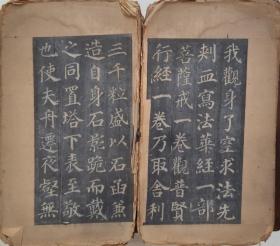 我觀身了空求法先
刺血寫法華經一部
菩薩戒一卷觀普賢
行經一卷乃取舍利
三千粒盛以石函兼
造自身石影跪而戴
之同置塔下表至敬
也使夫舟遷夜壑無